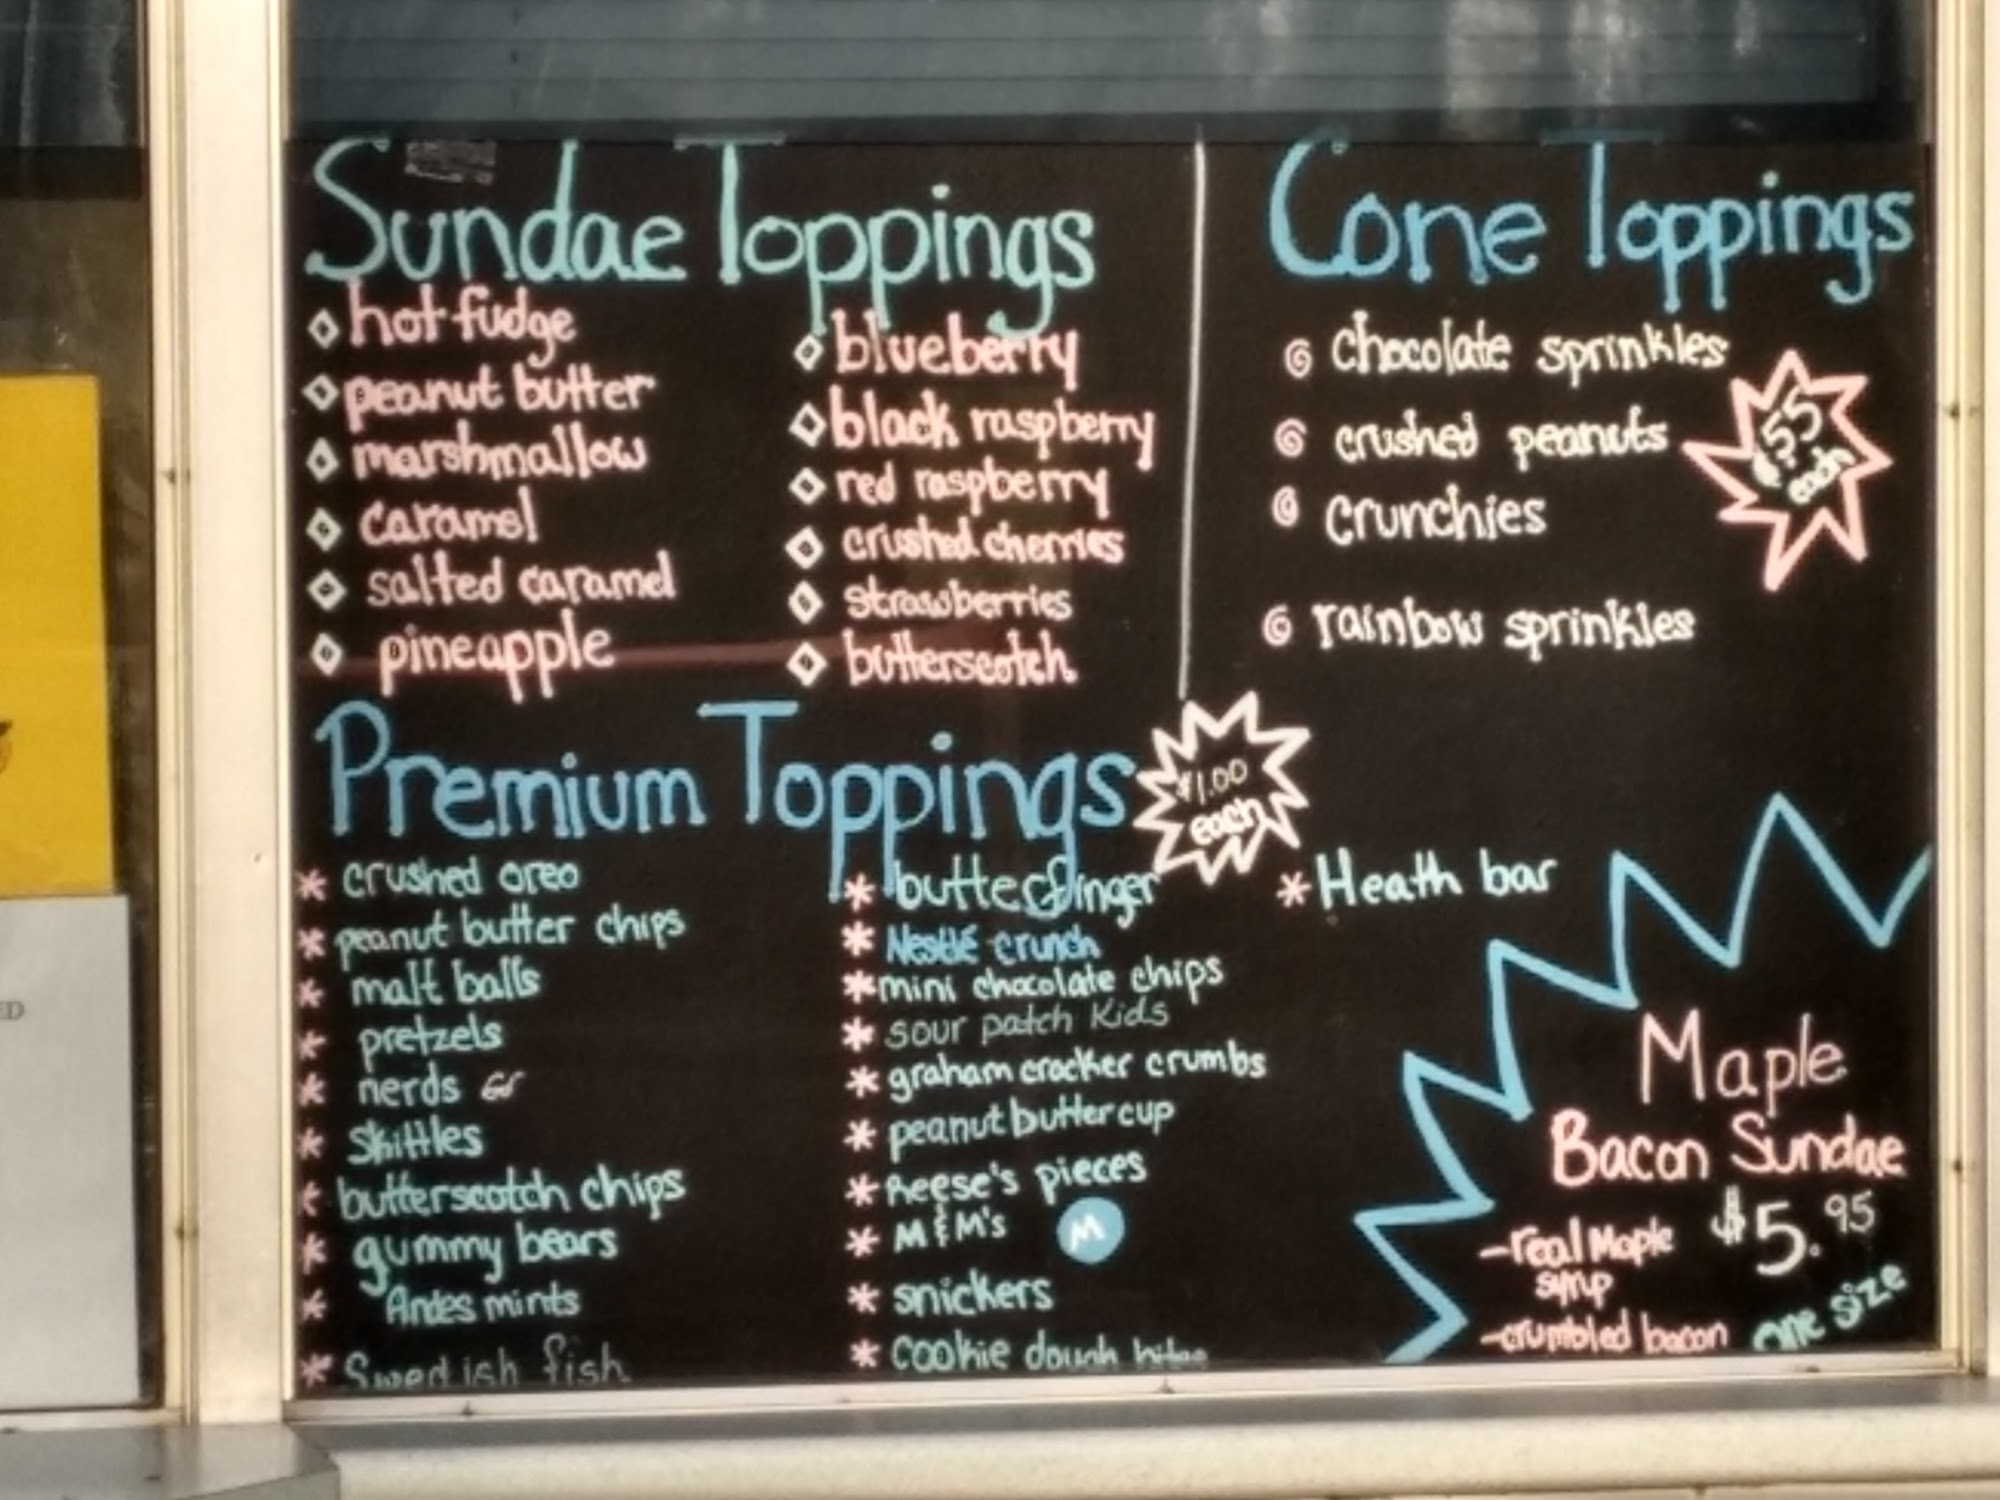 Sundae Toppings
hot fudge
peanut butter
marshmallow
caramel
salted caramel
pineapple
blueberry
black raspberry
red raspberry
crushed cherries
strawberries
butterscotch
Cone Toppings
chocolate sprinkles
crushed peanuts
crunchies
rainbow sprinkles
$.55
each
Premium Toppings
$1.00
each
crushed oreo
peanut butter chips
malt balls
pretzels
nerds
skittles
butterscotch chips
gummy bears
Andes mints
Swedish fish
butterfinger
Nestlé crunch
mini chocolate chips
sour patch kids
graham cracker crumbs
peanut butter cup
Reese's pieces
M&M's
M
snickers
cookie dough bites
Heath bar
Maple
Bacon Sundae
$5.95
-real Maple
syrup
-crumbled bacon
one size
ED